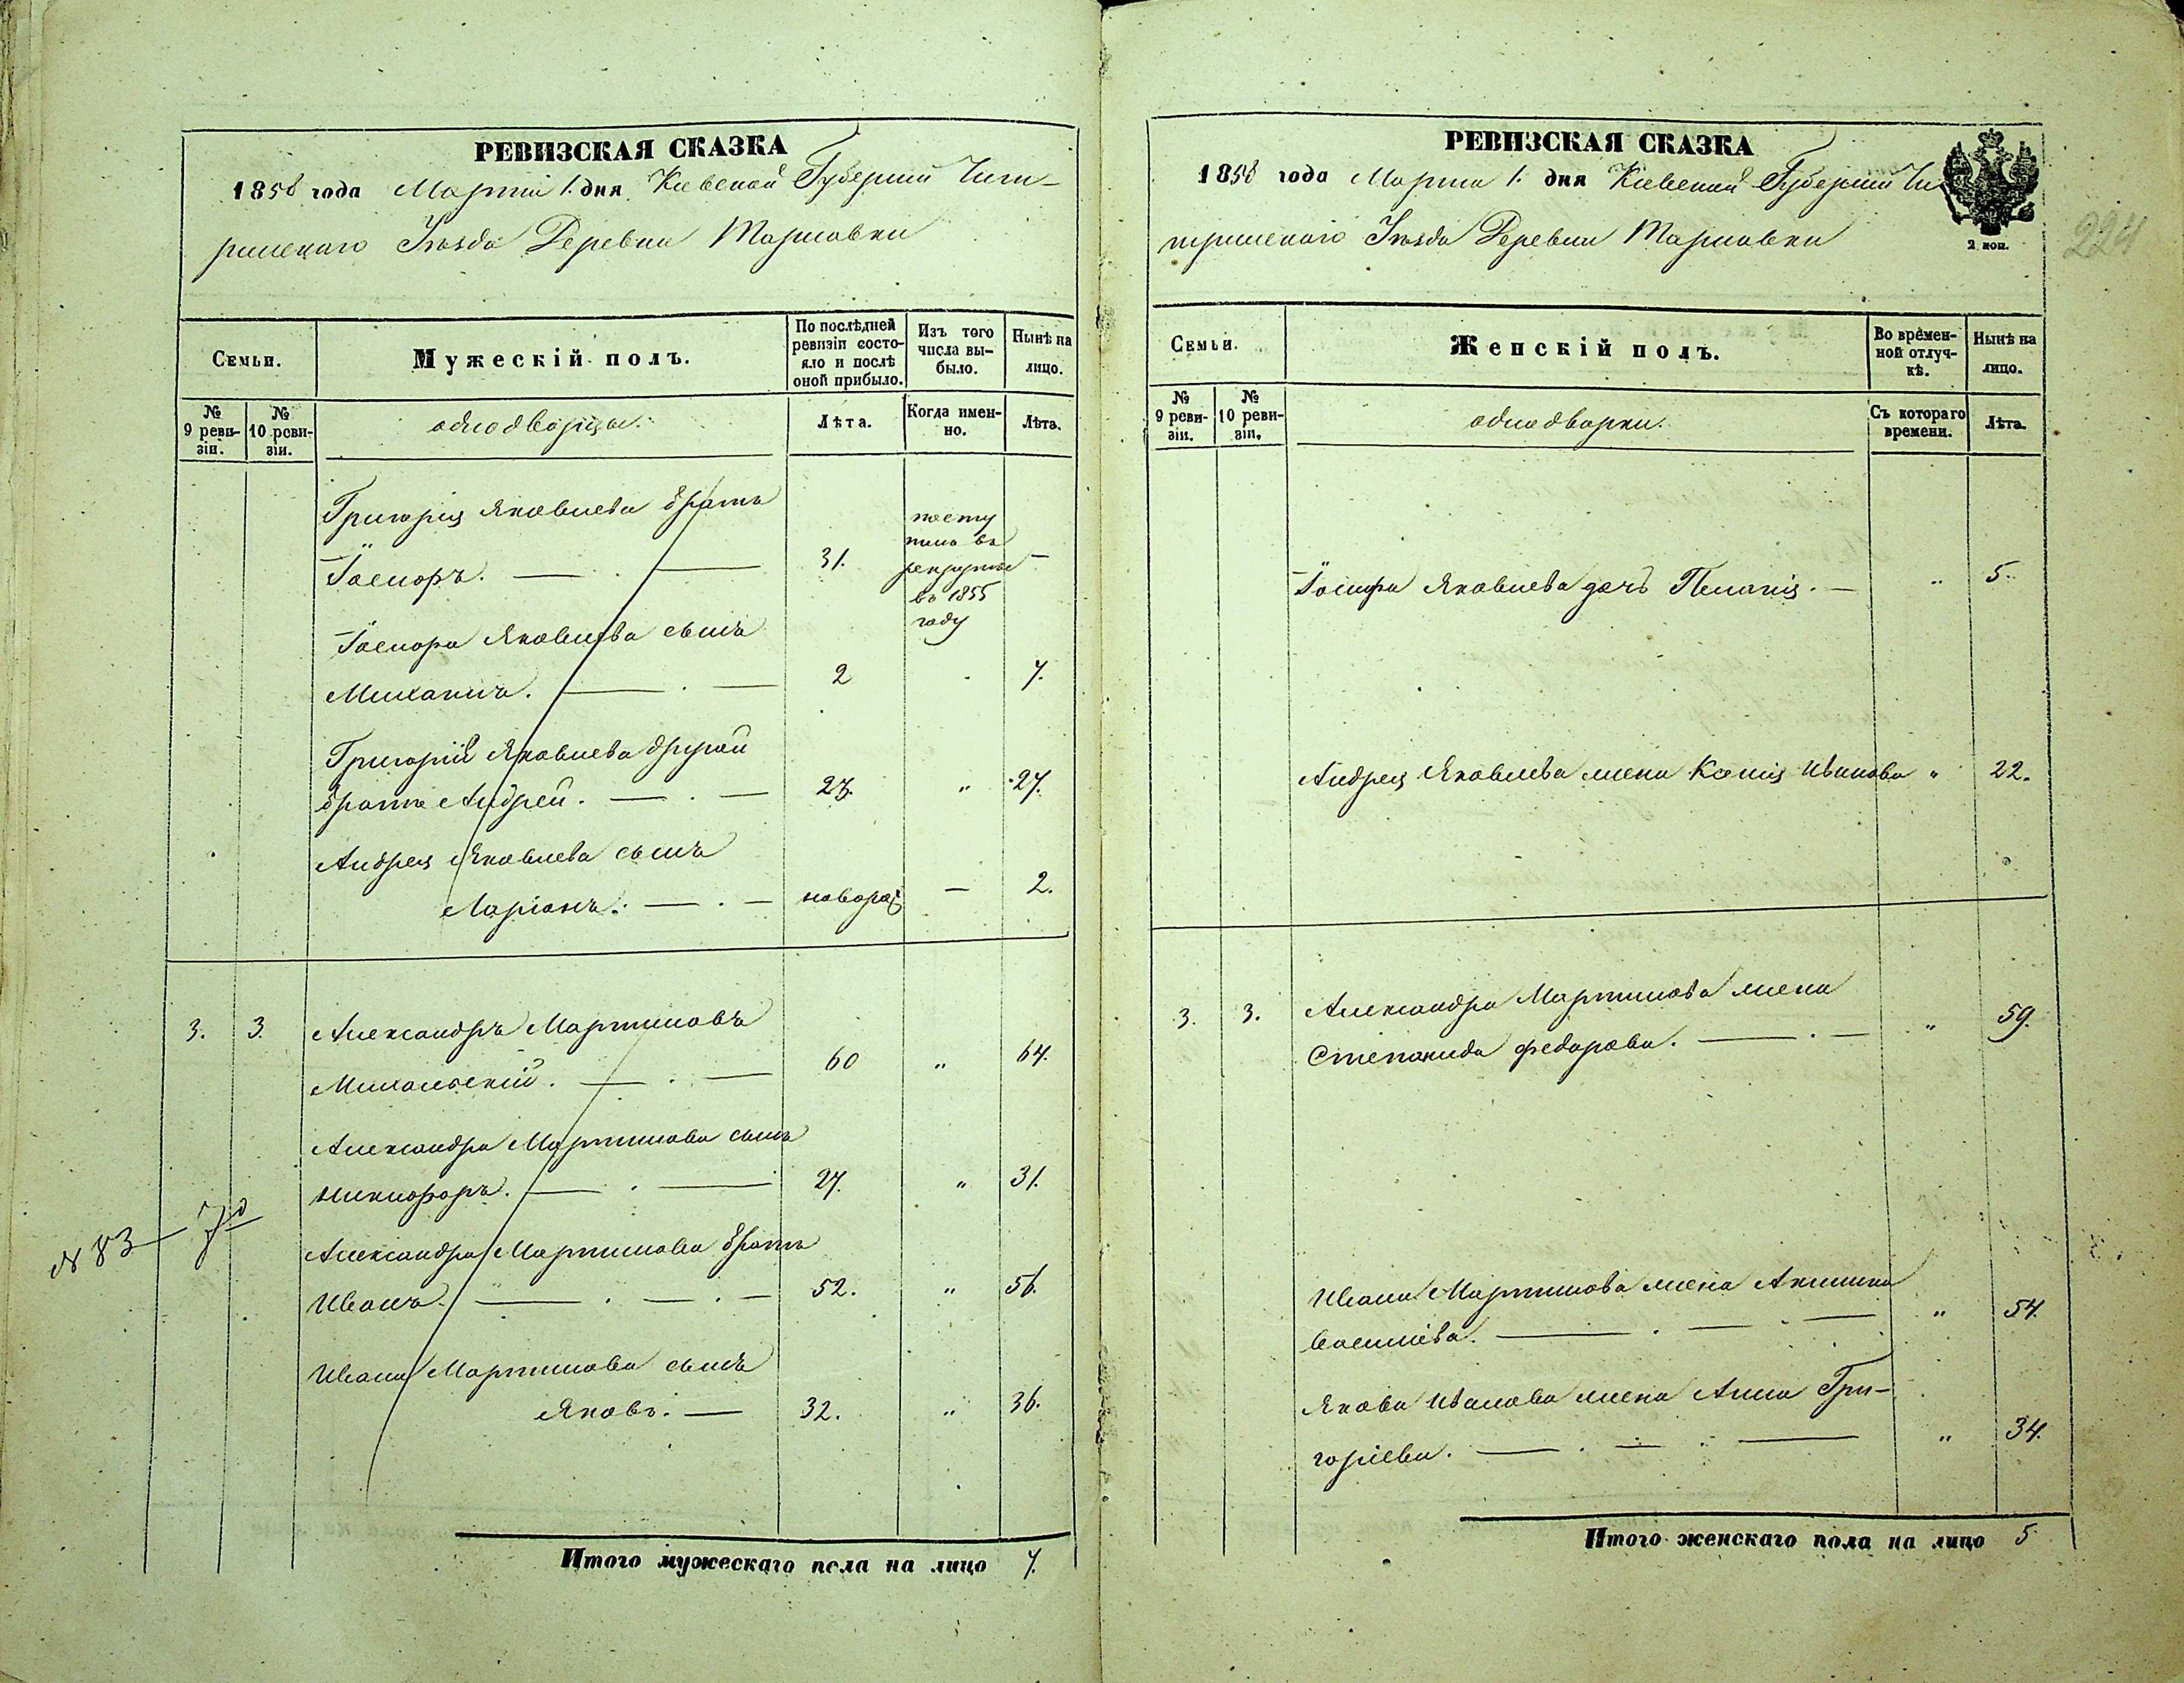 РЕВИЗСКАЯ СКАЗКА
1858 года Марта 1. дня Киевской Губернiи Чиги-
ринскаго Уѣзда Деревни
Семьи.
Мужескiй полъ.
По послѣдней ревизiи состо-яло и послѣ оной прибыло.
Изъ того числа вы-было.
Нынѣ на лицо.
№ 9 реви-зiи.
№ 10 реви-зiи.
однодворцы.
Лѣта.
Когда имен-но.
Лѣта.
Григорiя Яковлева братъ
31. посту пилъ въ рекруты въ 1855 году –
Яковлева сынъ
Михаилъ. 2 7.
Григорiя Яковлева другой
братъ Андрей. 23. " 27.
Андрея Яковлева сынъ
Ларiонъ. новорож — 2.
3. 3. Александръ Мартиновъ
60 " 64.
Александра Мартинова сынъ
Никифоръ. 27. " 31.
№ 83
Александра Мартинова братъ
Иванъ. 52. " 56.
Ивана Мартинова сынъ
Яковъ. 32. " 36.
Итого мужескаго пола на лицо 7.
РЕВИЗСКАЯ СКАЗКА
1858 года Марта 1. дня Киевской Губернiи Чи
гиринскаго Уѣзда Деревни
2 коп.
224
Семьи.
Женскiй полъ.
Во времен-ной отлуч-кѣ.
Нынѣ на лицо.
№ 9 реви-зiи.
№ 10 реви-зiи.
однодворки.
Съ котораго времени.
Лѣта.
Яковлева дочь Пелагiя. — " 5.
Андрея Яковлева жена Ксенiя Иванова " 22.
3. 3. Александра Мартинова жена
Степанида Федорова. " 59.
Ивана Мартинова жена Акилина
Васильева. " 54.
Якова Иванова жена Анна Гри-
горiева. " 34.
Итого женскаго пола на лицо 5